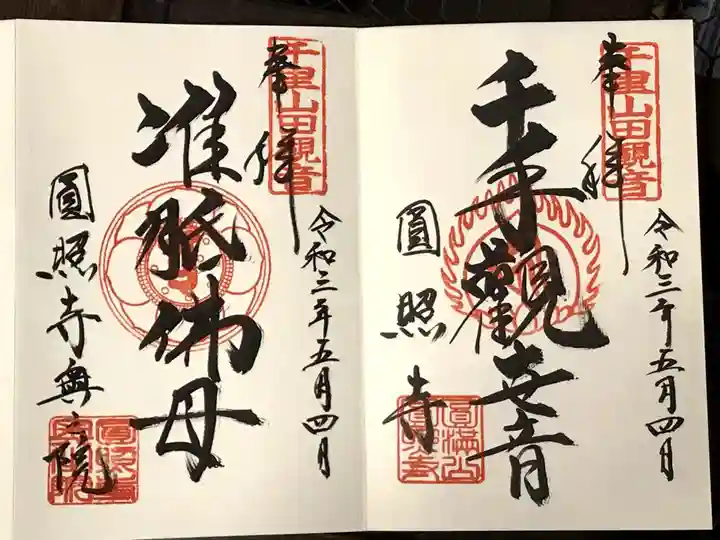 千里山田觀音
奉拝
令和三年五月四日
千手觀世音
圓照寺
千里山田觀音
奉拝
令和三年五月四日
准胝佛母
圓照寺奥之院